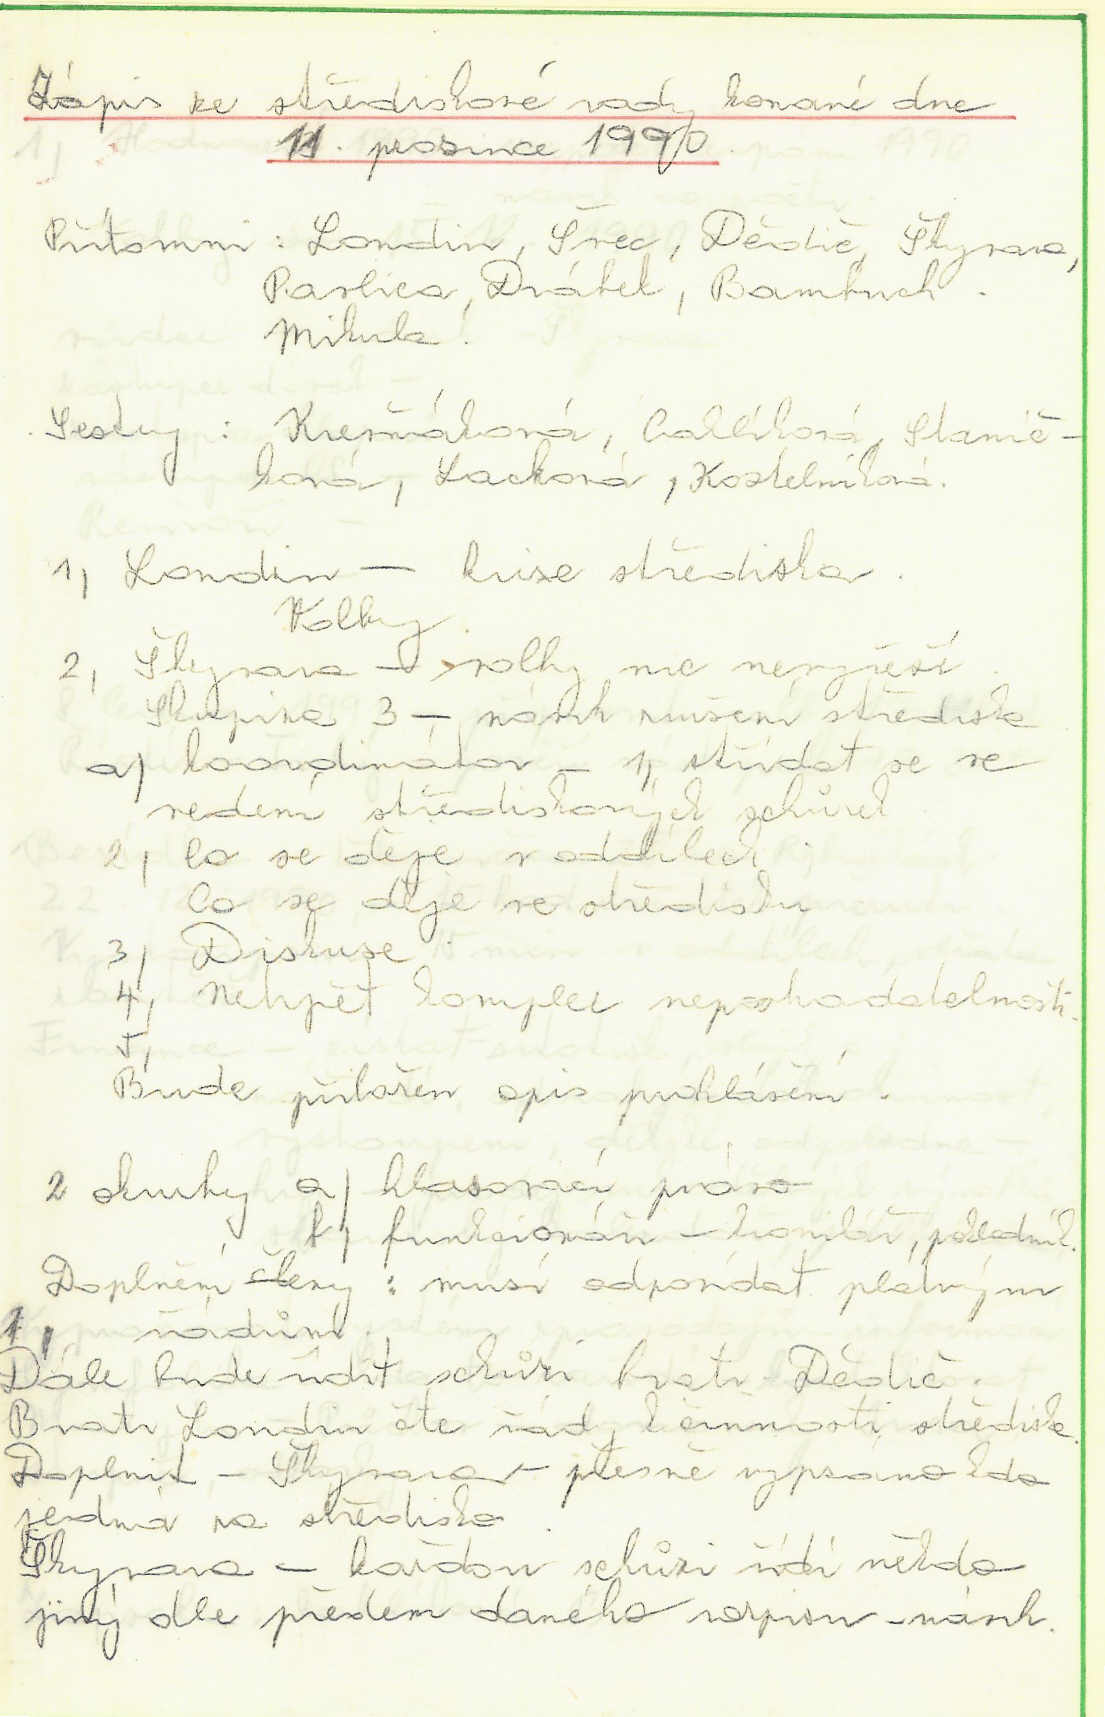 Zápis ze střediskové rady konané dne
11. prosince 1990
Přítomni : Londin, Švec, Dědič, Škyvara,
Pavlica, Drábek, Bambuch.
Mikula.
Sestry : Kresťáková, Cablíková, Stanič-
ková, Lacková, Kostelníková.
1, Londin — krize střediska.
Volby.
2, Škyvara — volby nic nevyřeší.
Skupina 3 — návrh zrušení střediska
a) koordinátor — 1, střídat se ve
vedení střediskových schůzek
2, Co se děje v oddílech.
Co se děje ve středisku
3, Diskuse.
4, Netrpět komplex neposkadatelnosti.
5,
Bude přiložen opis prohlášení.
2 okruhy a) hlasovací právo
b) funkcionáři — kronikář, pokladník.
Doplnění členy : musí odpovídat platným
1, řádům.
Dále bude řídit schůzi bratr Dědič.
Bratr Londin čte řády k činnosti středisk.
Doplnit — Škyvara — přesně vypsano kdo
jedná za středisko.
Škyvara — každou schůzi řídí někdo
jiný dle předem daného rozpisu — návrh.